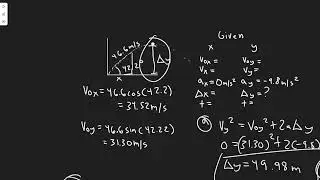 46.6m/s
42.2°
Δy
x
Given
x y
Vox= Voy=
Vx= Vy=
ax=0m/s² ay=-9.8m/s²
Δx= Δy=?
t= t=
Vox=46.6cos(42.2)
=34.52m/s
Voy=46.6sin(42.22)
=31.30m/s
a Vy²=Voy²+2aΔy
0=(31.30)²+2(-9.8
Δy=49.98m